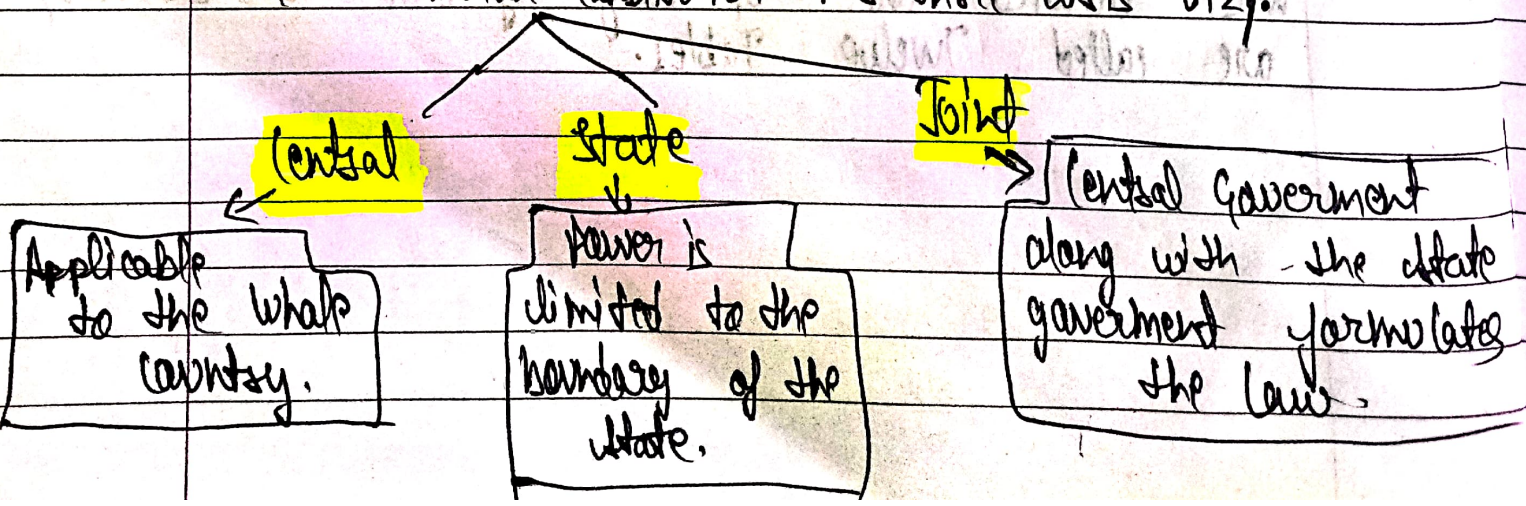 viz.
Central
State
Joint
Applicable
to the whole
country.
Power is
limited to the
boundary of the
state.
Central Goverment
along with the state
goverment formulates
the law.